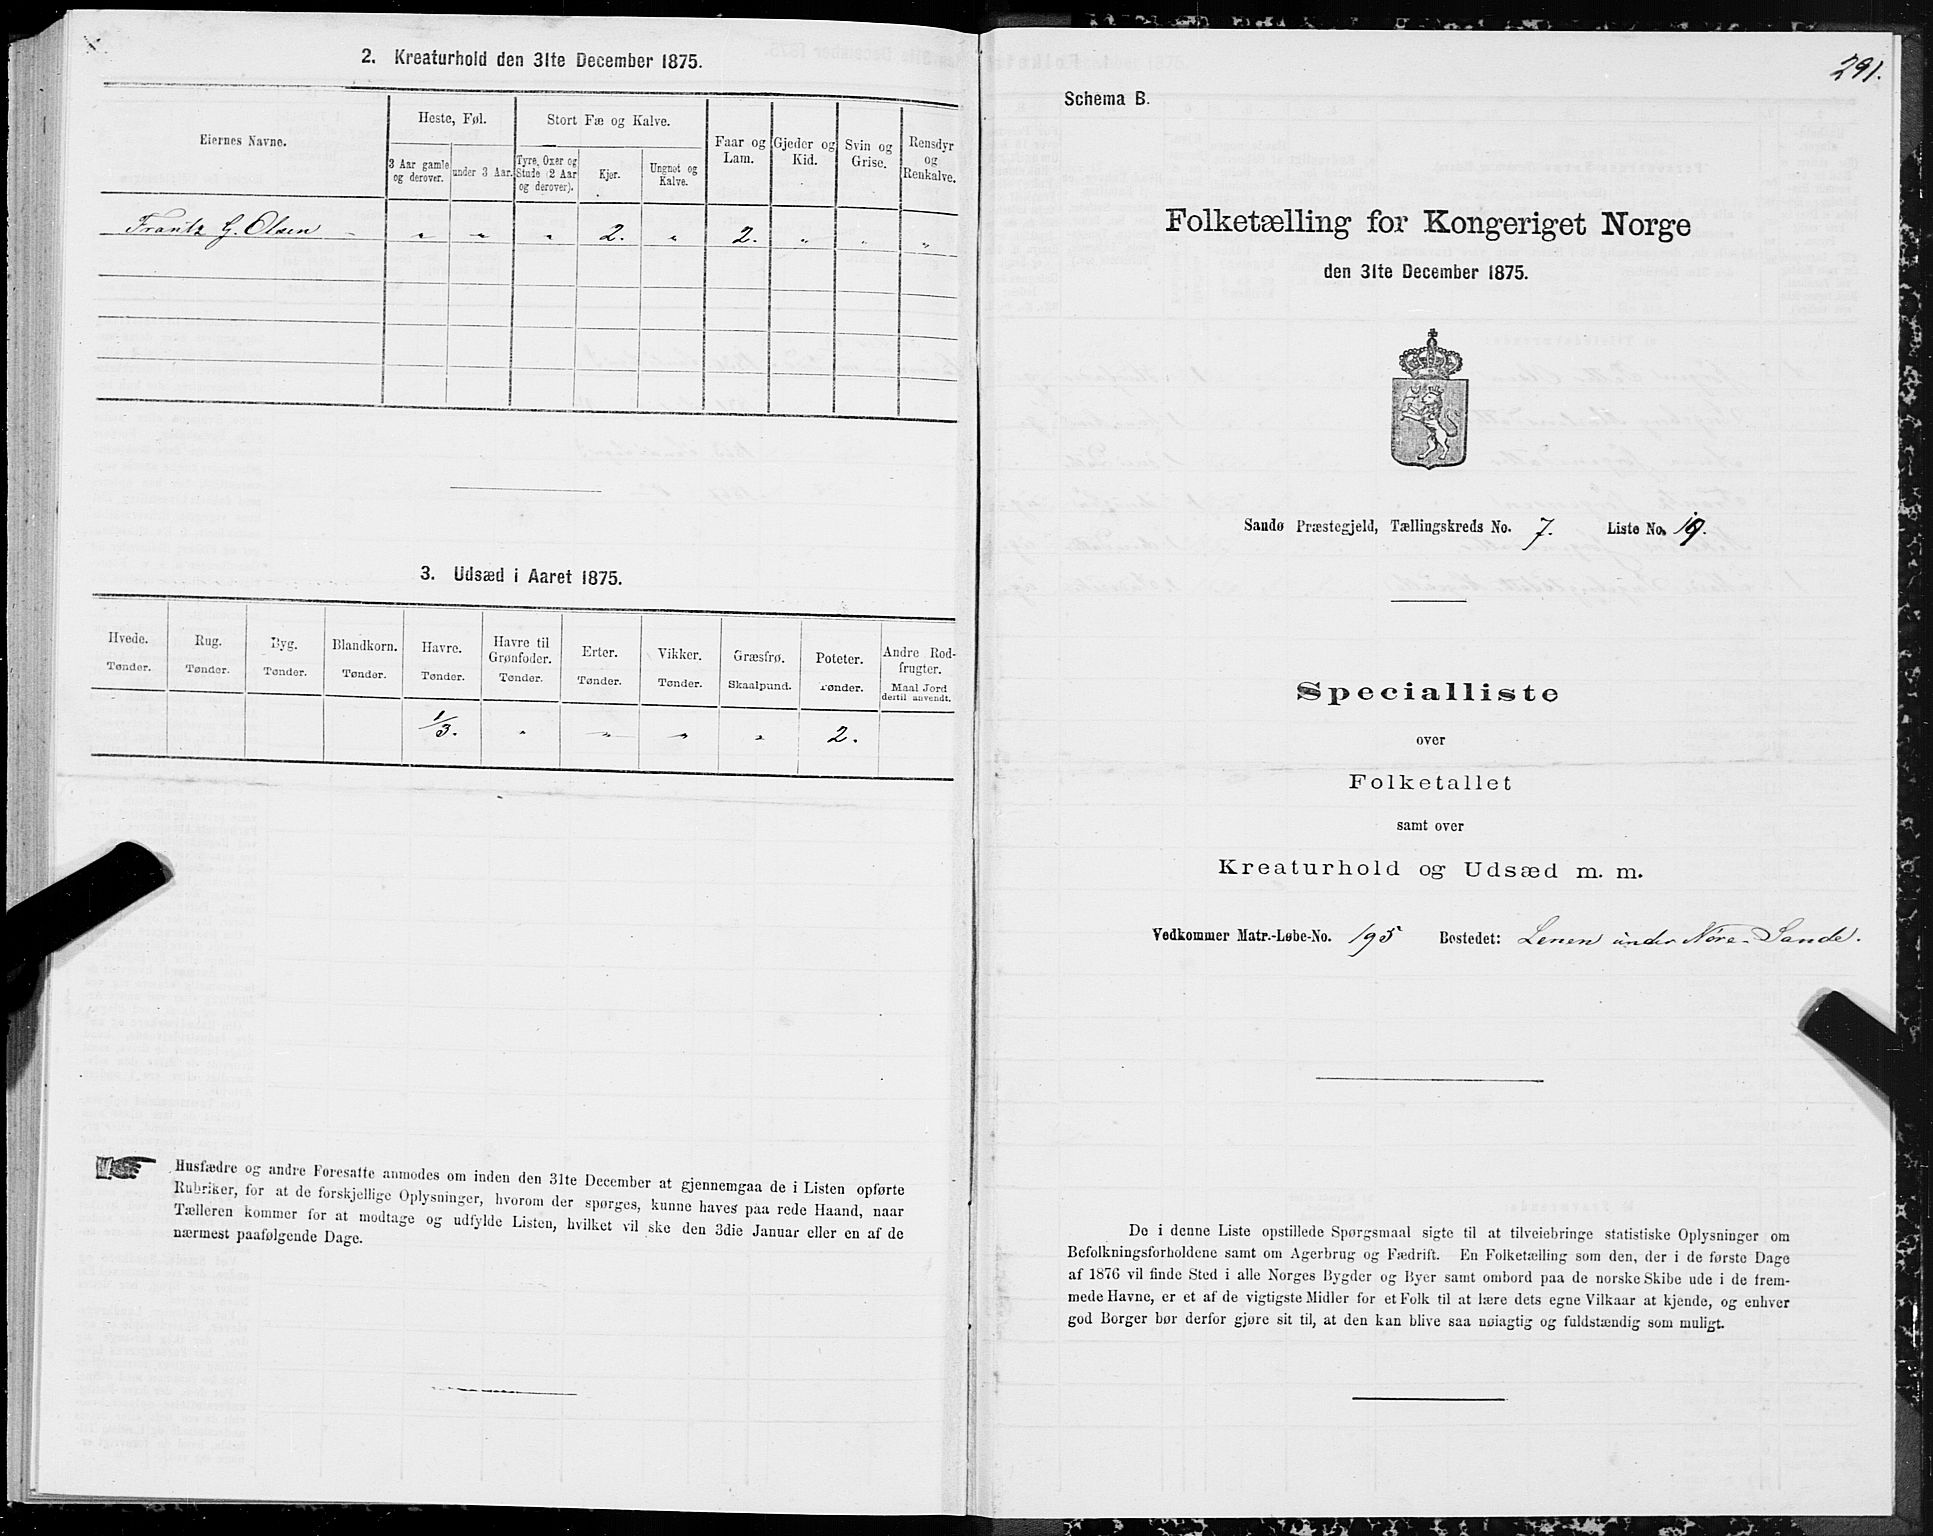 2. Kreaturhold den 31te December 1875.
Eiernes Navne.
Heste, Føl.
Stort Fæ og Kalve.
Faar og Lam.
Gjeder og Kid.
Svin og Grise.
Rensdyr og Renkalve.
3 Aar gamle og derover.
under 3 Aar.
Tyre, Oxer og Stude (2 Aar og derover).
Kjør.
Ungnøt og Kalve.
Frantz G. Olsen - " " " 2. " 2. " " "
3. Udsæd i Aaret 1875.
Hvede. Rug. Byg. Blandkorn. Havre. Havre til Grønfoder. Erter. Vikker. Græsfrø. Poteter. Andre Rodfrugter.
Tønder. Tønder. Tønder. Tønder. Tønder. Tønder. Tønder. Tønder. Skaalpund. Tønder. Maal Jord dertil anvendt.
1/3. " " " " 2.
Husfædre og andre Foresatte anmodes om inden den 31te December at gjennemgaa de i Listen opførte
Rubriker, for at de forskjellige Oplysninger, hvorom der spørges, kunne haves paa rede Haand, naar
Tælleren kommer for at modtage og udfylde Listen, hvilket vil ske den 3die Januar eller en af de
nærmest paafølgende Dage.
291.
Schema B.
Folketælling for Kongeriget Norge
den 31te December 1875.
Sandø Præstegjeld, Tællingskreds No. 7. Liste No. 19.
Specialliste
over
Folketallet
samt over
Kreaturhold og Udsæd m. m.
Vedkommer Matr.-Løbe-No. 195 Bostedet: Lenen under Nöre-Sande.
De i denne Liste opstillede Spørgsmaal sigte til at tilveiebringe statistiske Oplysninger om
Befolkningsforholdene samt om Agerbrug og Fædrift. En Folketælling som den, der i de første Dage
af 1876 vil finde Sted i alle Norges Bygder og Byer samt ombord paa de norske Skibe ude i de frem-
mede Havne, er et af de vigtigste Midler for et Folk til at lære dets egne Vilkaar at kjende, og enhver
god Borger bør derfor gjøre sit til, at den kan blive saa nøiagtig og fuldstændig som muligt.